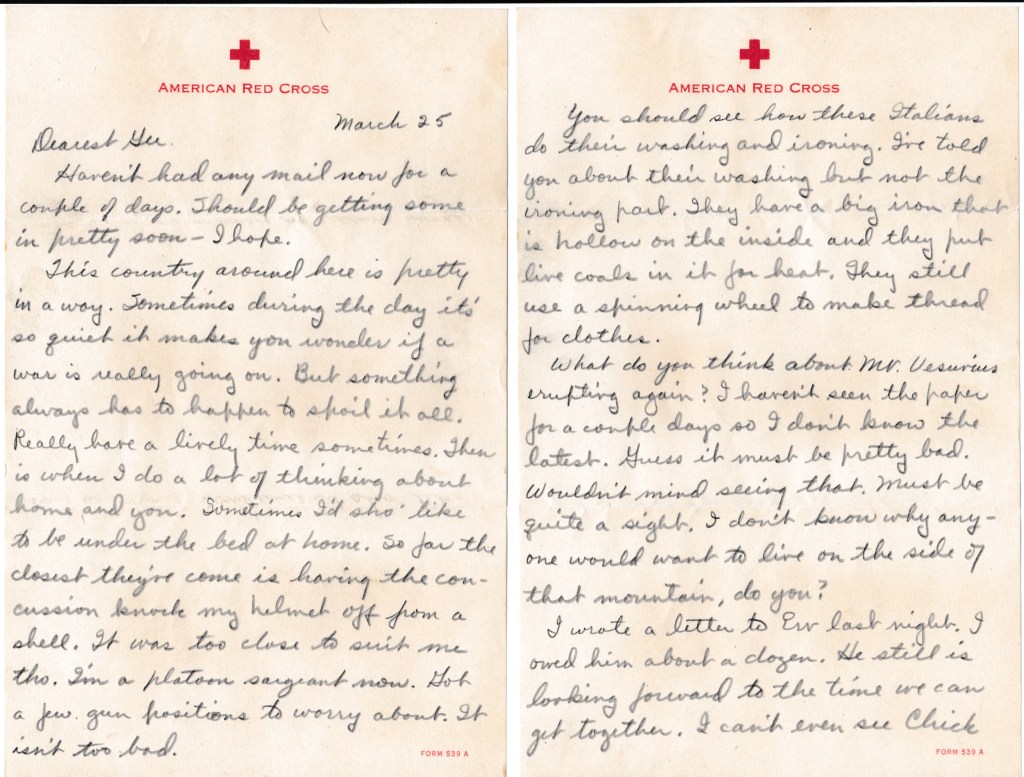 AMERICAN RED CROSS
March 25
Dearest Gee.
Haven't had any mail now for a
couple of days. Should be getting some
in pretty soon – I hope.
This country around here is pretty
in a way. Sometimes during the day it's
so quiet it makes you wonder if a
war is really going on. But something
always has to happen to spoil it all.
Really have a lively time sometimes. Then
is when I do a lot of thinking about
home and you. Sometimes I'd sho' like
to be under the bed at home. So far the
closest they've come is having the con-
cussion knock my helmet off from a
shell. It was too close to suit me
tho. I'm a platoon sargeant now. Got
a few gun positions to worry about. It
isn't too bad.
FORM 539 A
AMERICAN RED CROSS
You should see how these Italians
do their washing and ironing. I've told
you about their washing but not the
ironing part. They have a big iron that
is hollow on the inside and they put
live coals in it for heat. They still
use a spinning wheel to make thread
for clothes.
What do you think about Mt. Vesuvius
erupting again? I haven't seen the paper
for a couple days so I don't know the
latest. Guess it must be pretty bad.
Wouldn't mind seeing that. Must be
quite a sight. I don't know why any-
one would want to live on the side of
that mountain, do you?
I wrote a letter to Erv last night. I
owed him about a dozen. He still is
looking forward to the time we can
get together. I can't even see Chick
FORM 539 A